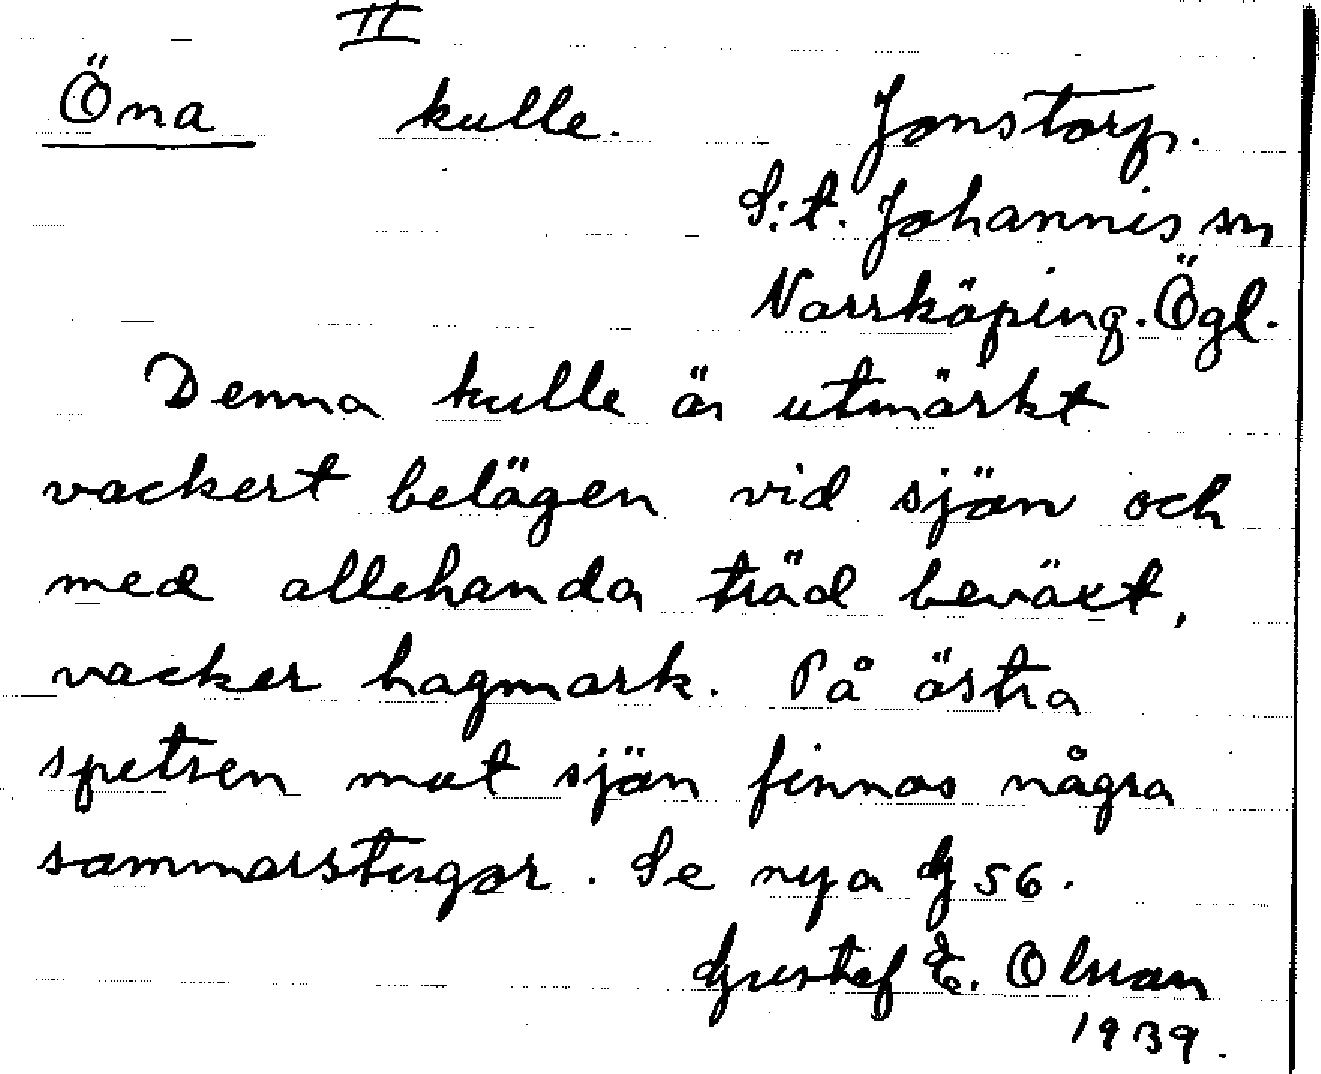 II
Öna kulle. Jonstorp.
S:t. Johannis sn
Norrköping. Ögl.
Denna kulle är utmärkt
vackert belägen vid sjön och
med allehanda träd beväxt,
vacker hagmark. På östra
spetsen mot sjön finnas några
sommarstugor. Se nya G 56.
Gustaf E. Olsson
1939.